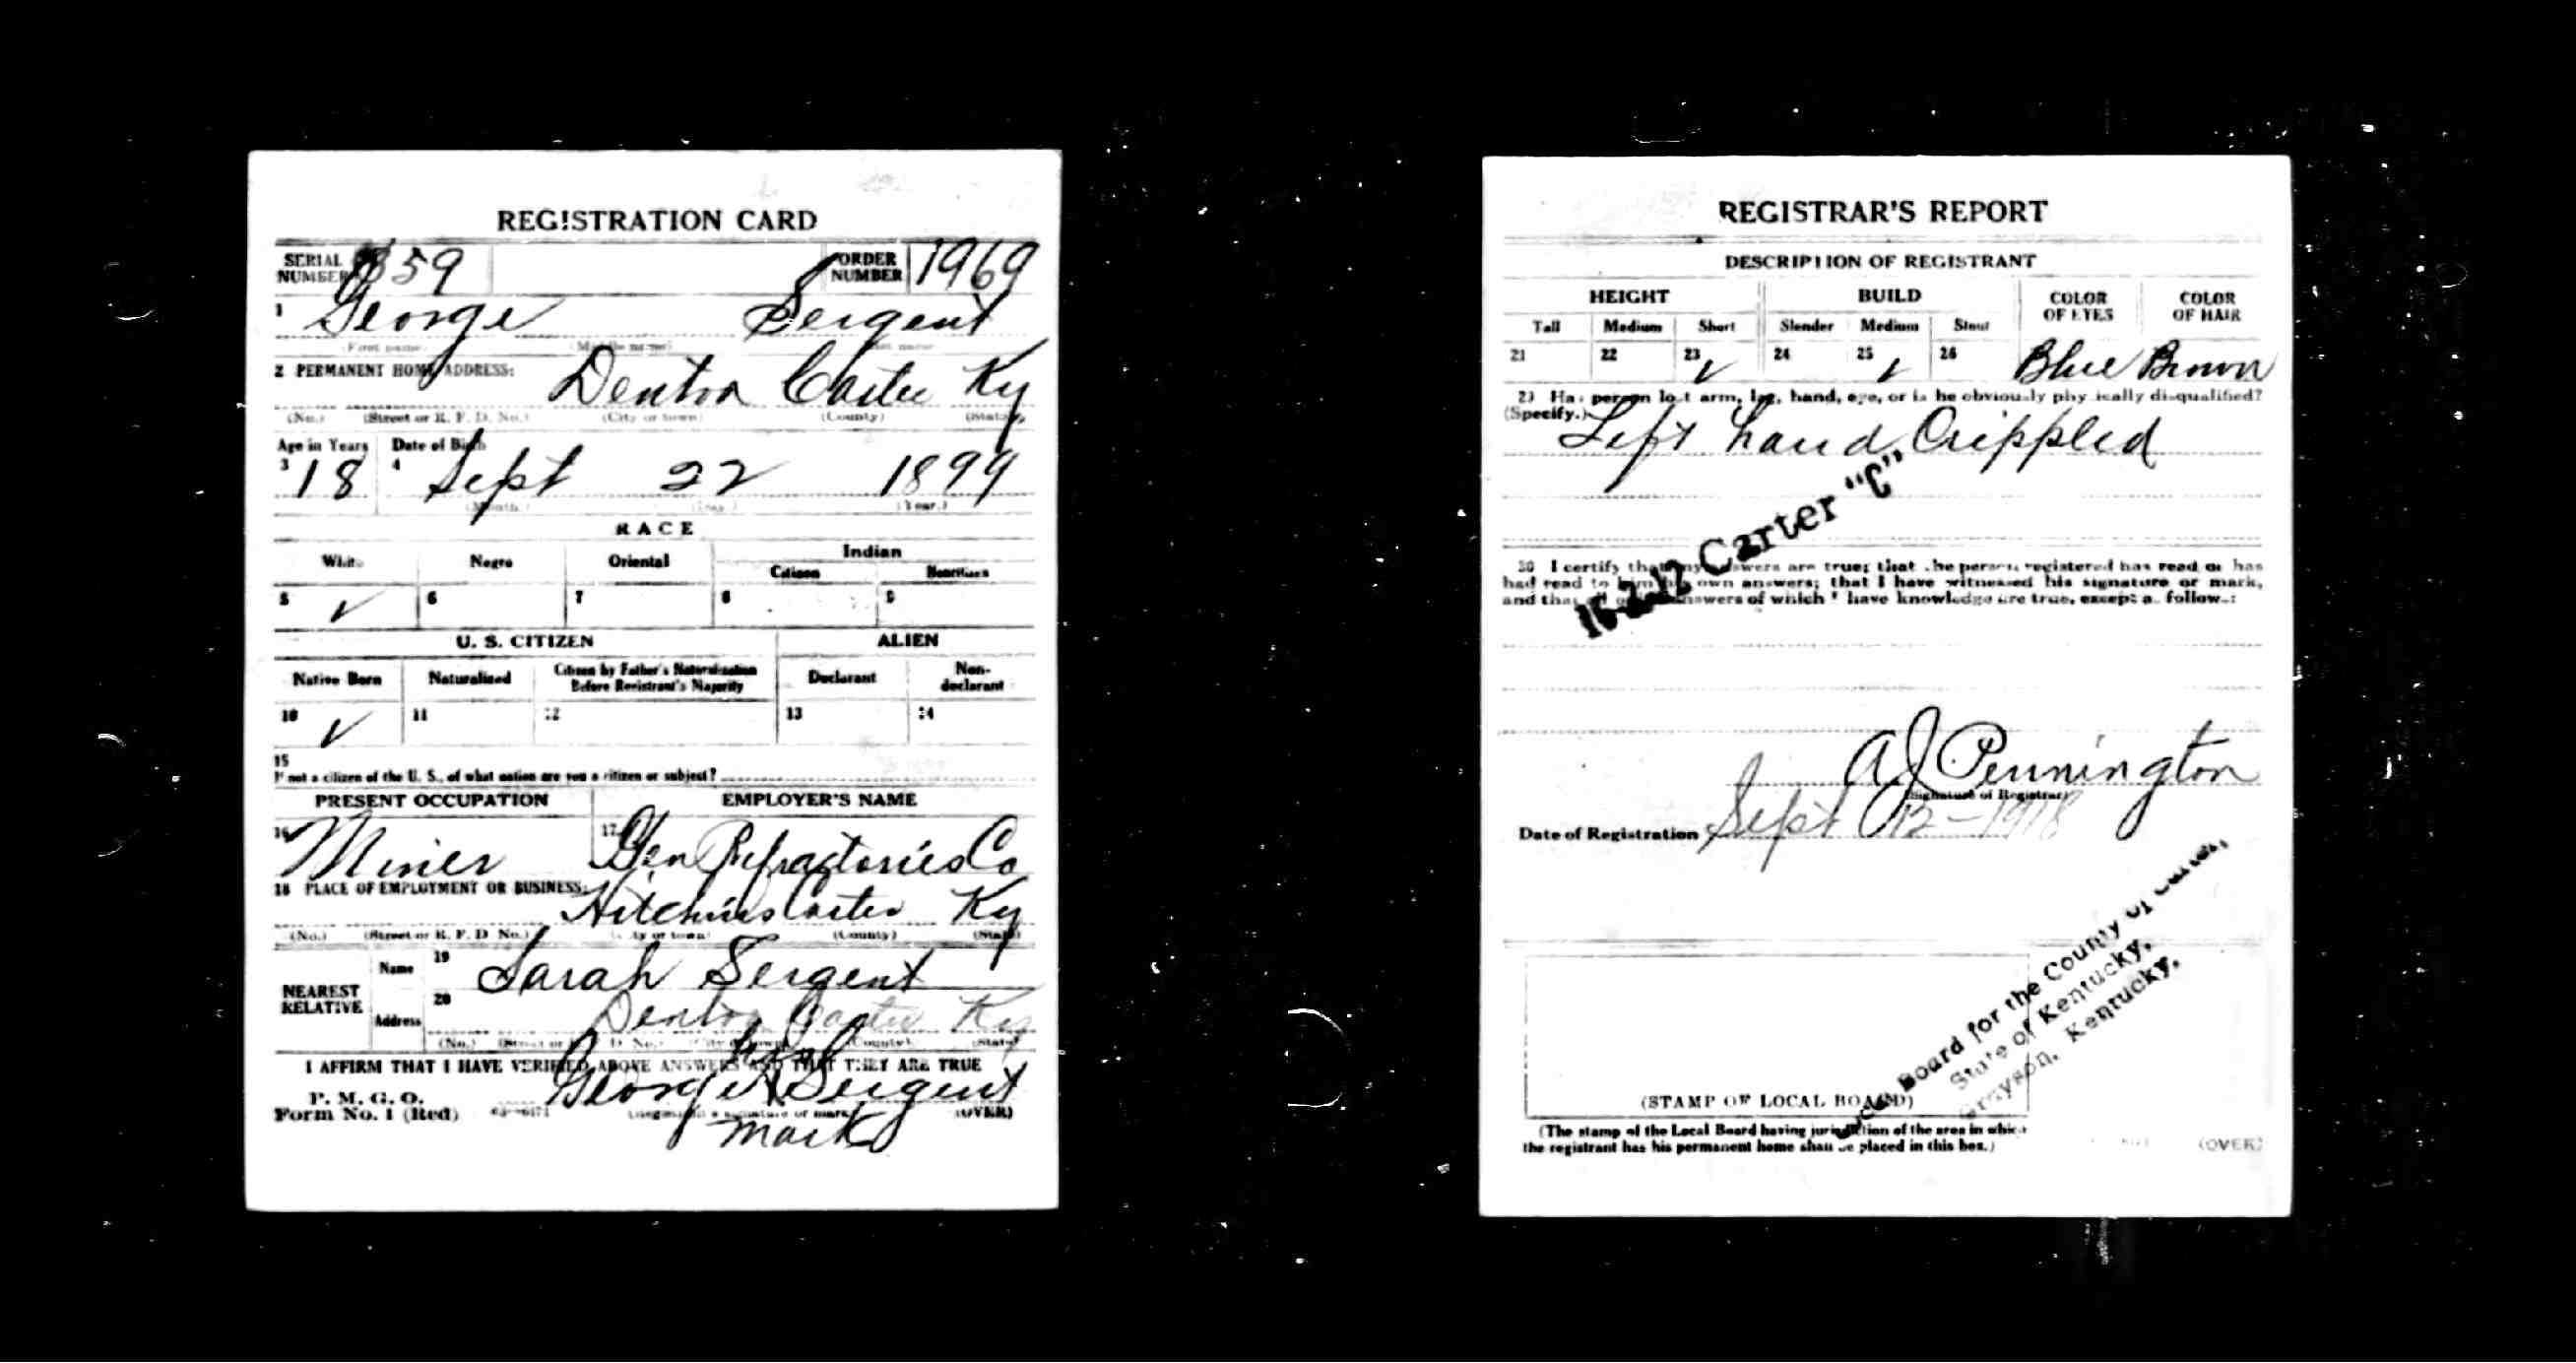 REGISTRATION CARD
SERIAL NUMBER 859 ORDER NUMBER 1969
1 George Sergent
First name Middle name Last name
2 PERMANENT HOME ADDRESS: Denton Carter Ky
(No.) (Street or R. F. D. No.) (City or town) (County) (State)
Age in Years Date of Birth
3 18 4 Sept 22 1899
(Month.) (Day.) (Year.)
RACE
White Negro Oriental Indian
Citizen Noncitizen
5 ✓ 6 7 8 9
U. S. CITIZEN ALIEN
Native Born Naturalized Citizen by Father's Naturalization Before Registrant's Majority Declarant Non-declarant
10 ✓ 11 12 13 14
15
If not a citizen of the U. S., of what nation are you a citizen or subject?
PRESENT OCCUPATION EMPLOYER'S NAME
16 Miner 17 Gen Refractories Co
18 PLACE OF EMPLOYMENT OR BUSINESS: Hitchins Carter Ky
(No.) (Street or R. F. D. No.) (City or town) (County) (State)
NEAREST RELATIVE Name 19 Sarah Sergent
Address 20 Denton Carter Ky
(No.) (Street or R. F. D. No.) (City or town) (County) (State)
I AFFIRM THAT I HAVE VERIFIED ABOVE ANSWERS AND THAT THEY ARE TRUE
his
George X Sergent
mark
P. M. G. O.
Form No. 1 (Red) (Registrant's signature or mark) (OVER)
REGISTRAR'S REPORT
DESCRIPTION OF REGISTRANT
HEIGHT BUILD COLOR OF EYES COLOR OF HAIR
Tall Medium Short Slender Medium Stout
21 22 23 ✓ 24 25 ✓ 26 Blue Brown
29 Has person lost arm, leg, hand, eye, or is he obviously physically disqualified?
(Specify.) Left hand Crippled
16-2-12 Carter "C"
30 I certify that my answers are true; that the person registered has read or has
had read to him his own answers; that I have witnessed his signature or mark,
and that all of his answers of which I have knowledge are true, except as follows:
A J Pennington
(Signature of Registrar)
Date of Registration Sept 12-1918
Local Board for the County of Carter,
State of Kentucky,
Grayson, Kentucky.
(STAMP OF LOCAL BOARD)
(The stamp of the Local Board having jurisdiction of the area in which
the registrant has his permanent home shall be placed in this box.)
(OVER)